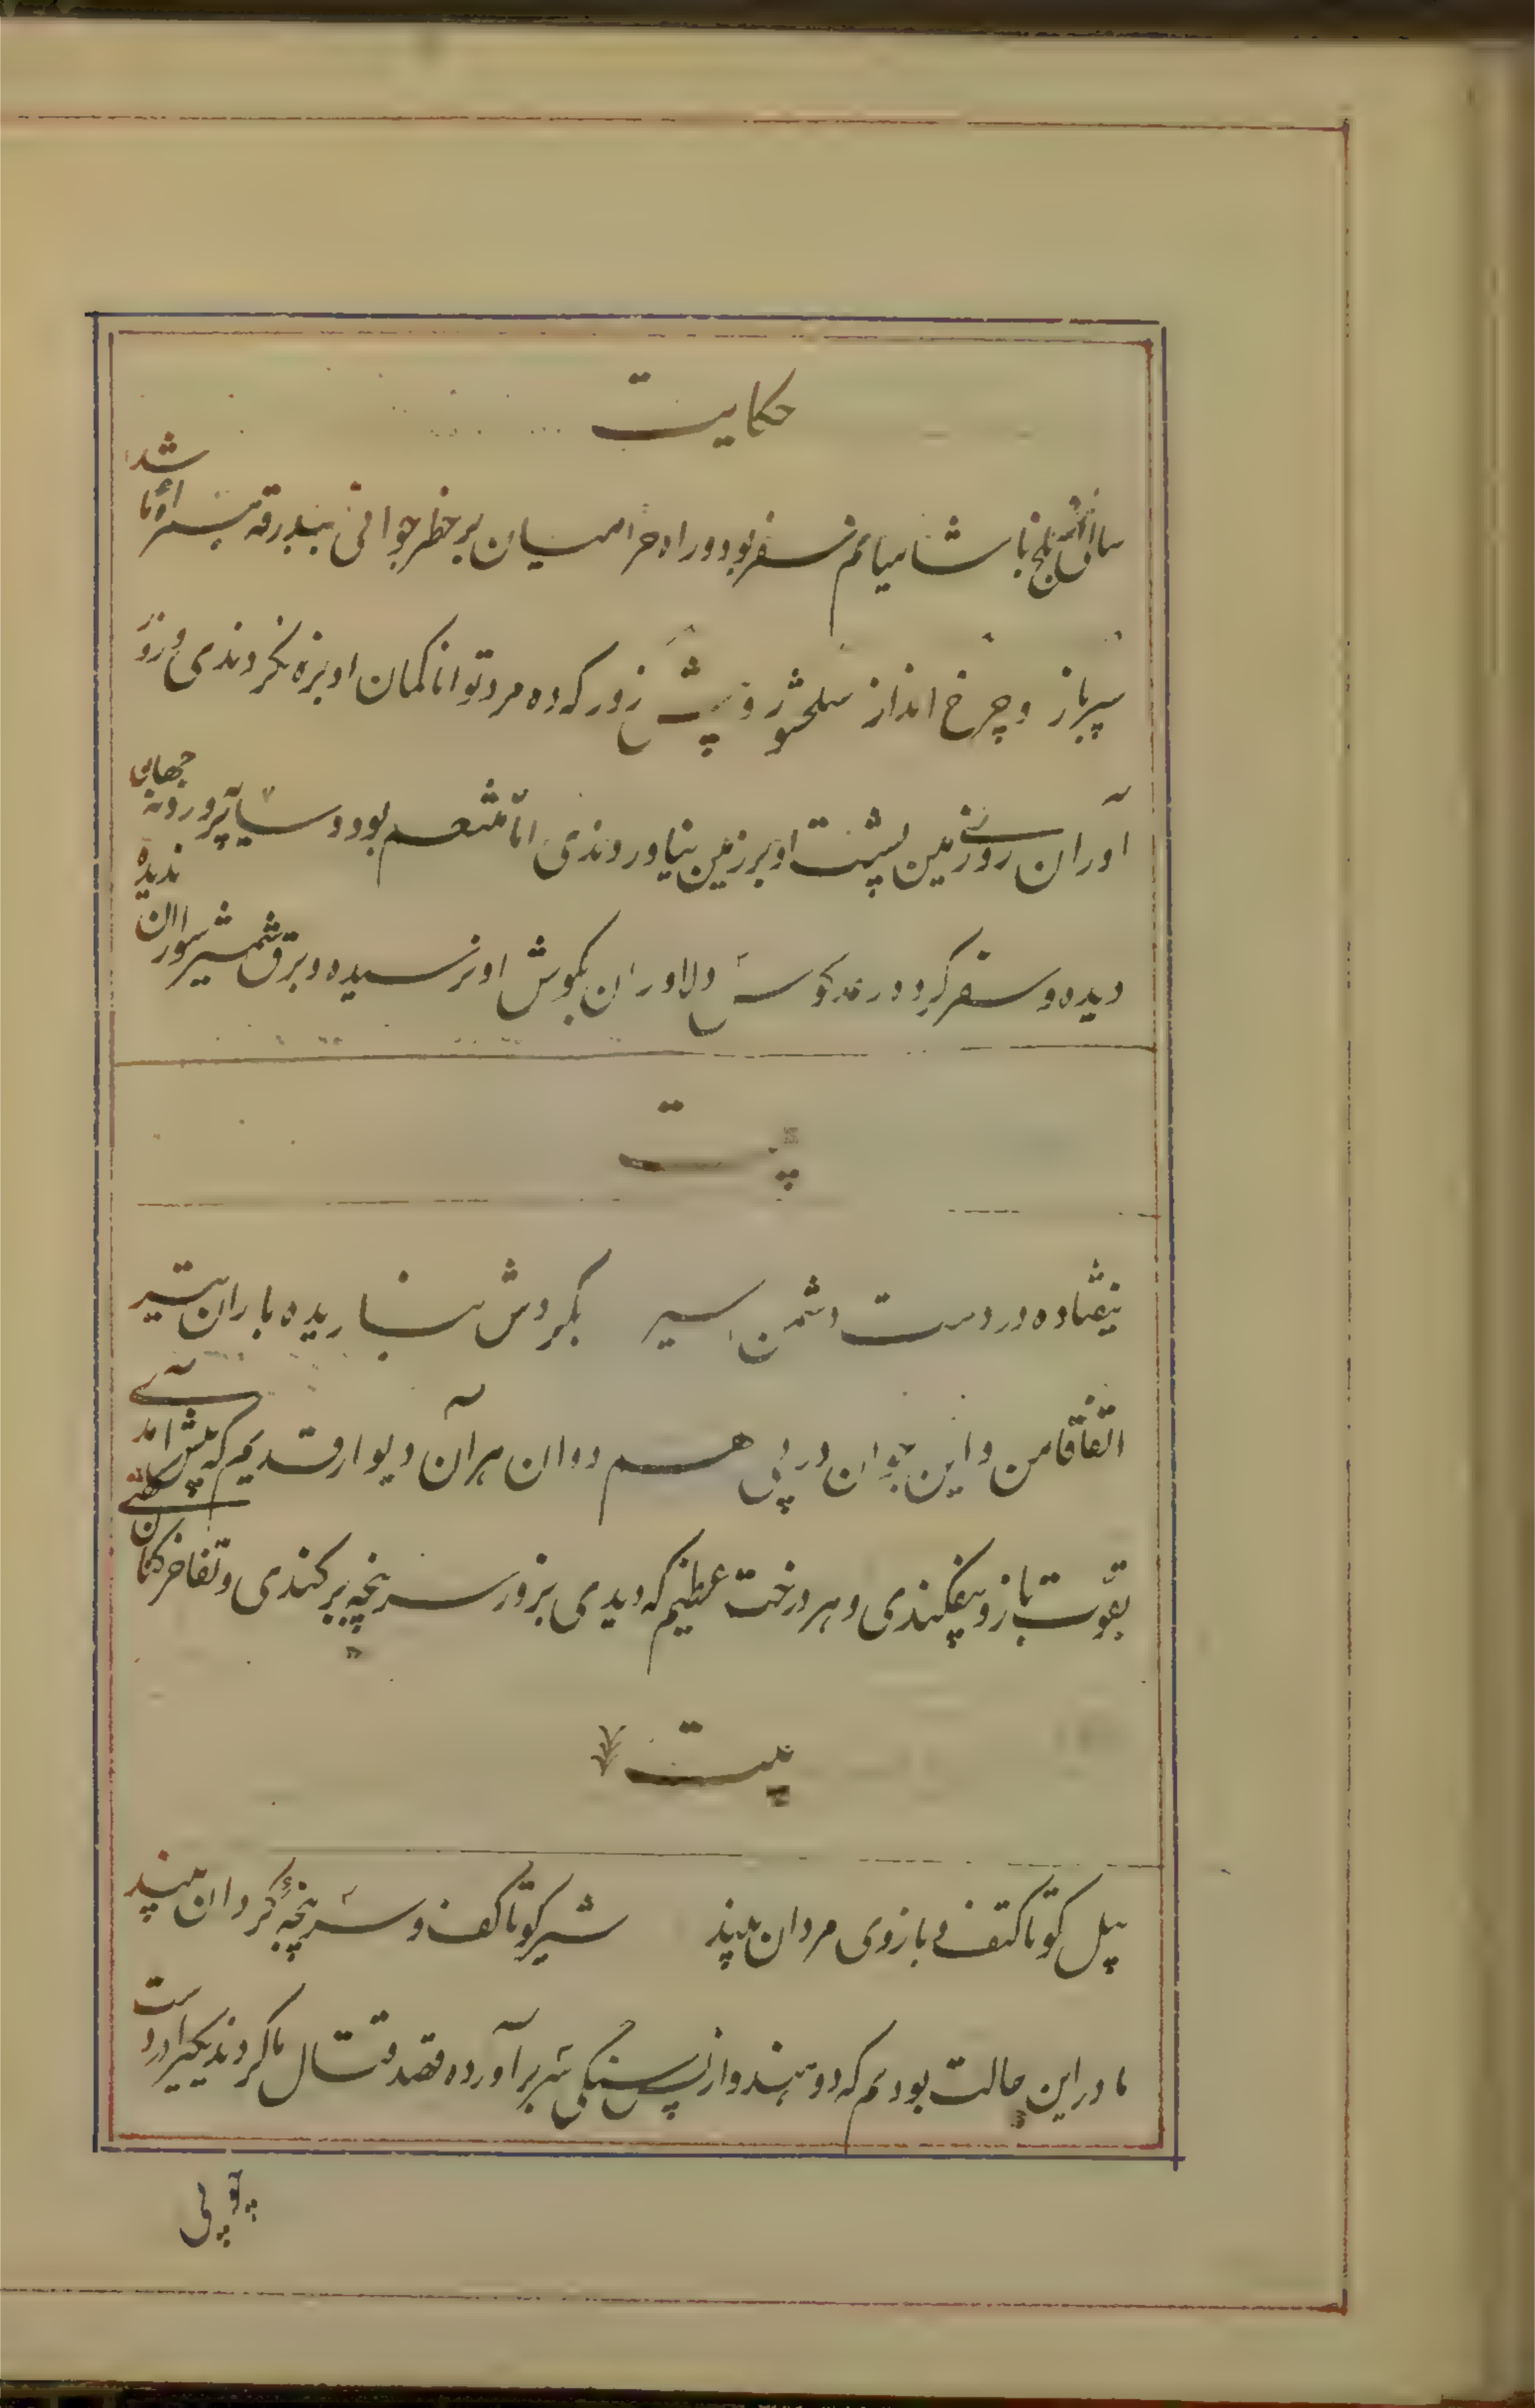 حکایت
سالی از بلخ با شامیانم سفر بود و راه حرامیان بر خطر جوانی ببدرقه همراه ما شد
سپرباز و چرخ انداز سلحشور و بیش زور که ده مرد توانا کمان او بزه نکردندی و زور
آوران روی زمین پشت او بر زمین نیاوردندی اما متنعم بود و سایه پرورده نه جهان
دیده و سفر کرده رعد کوس دلاوران بگوش او نرسیده و برق شمشیر سواران ندیده
بیت
نیفتاده در دست دشمن اسیر بگردش نباریده باران تیر
اتفاقا من و این جوان در پی هم دوان هر آن دیوار قدیم که پیش آمدی
بقوت بازو بیفکندی و هر درخت عظیم که دیدی بزور سرپنجه برکندی و تفاخر کنان گفتی
بیت
پیل کو تا کتف و بازوی مردان بیند شیر کو تا کف و سرپنجهٔ گردان بیند
ما در این حالت بودیم که دو هندو از پس سنگی سر برآورده قصد قتال ما کردند یکیرا در دست